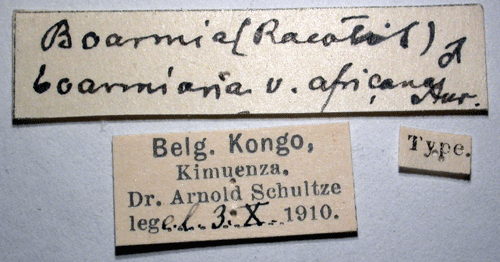 Boarmia (Racotis) ♂
boarmiaria v. africana Aur.
Belg. Kongo,
Kimuenza.
Dr. Arnold Schultze
leg. e. l. 3. X. 1910.
Type.